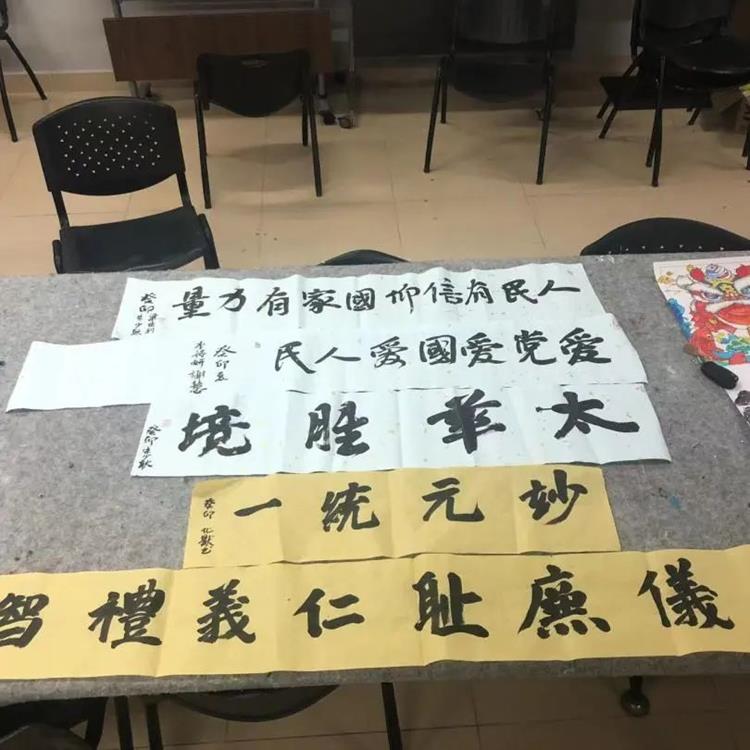 人民有信仰國家有力量
癸卯
愛党愛國愛人民
癸卯
太華胜境
癸卯
妙元統一
癸卯
儀廉耻仁義禮智